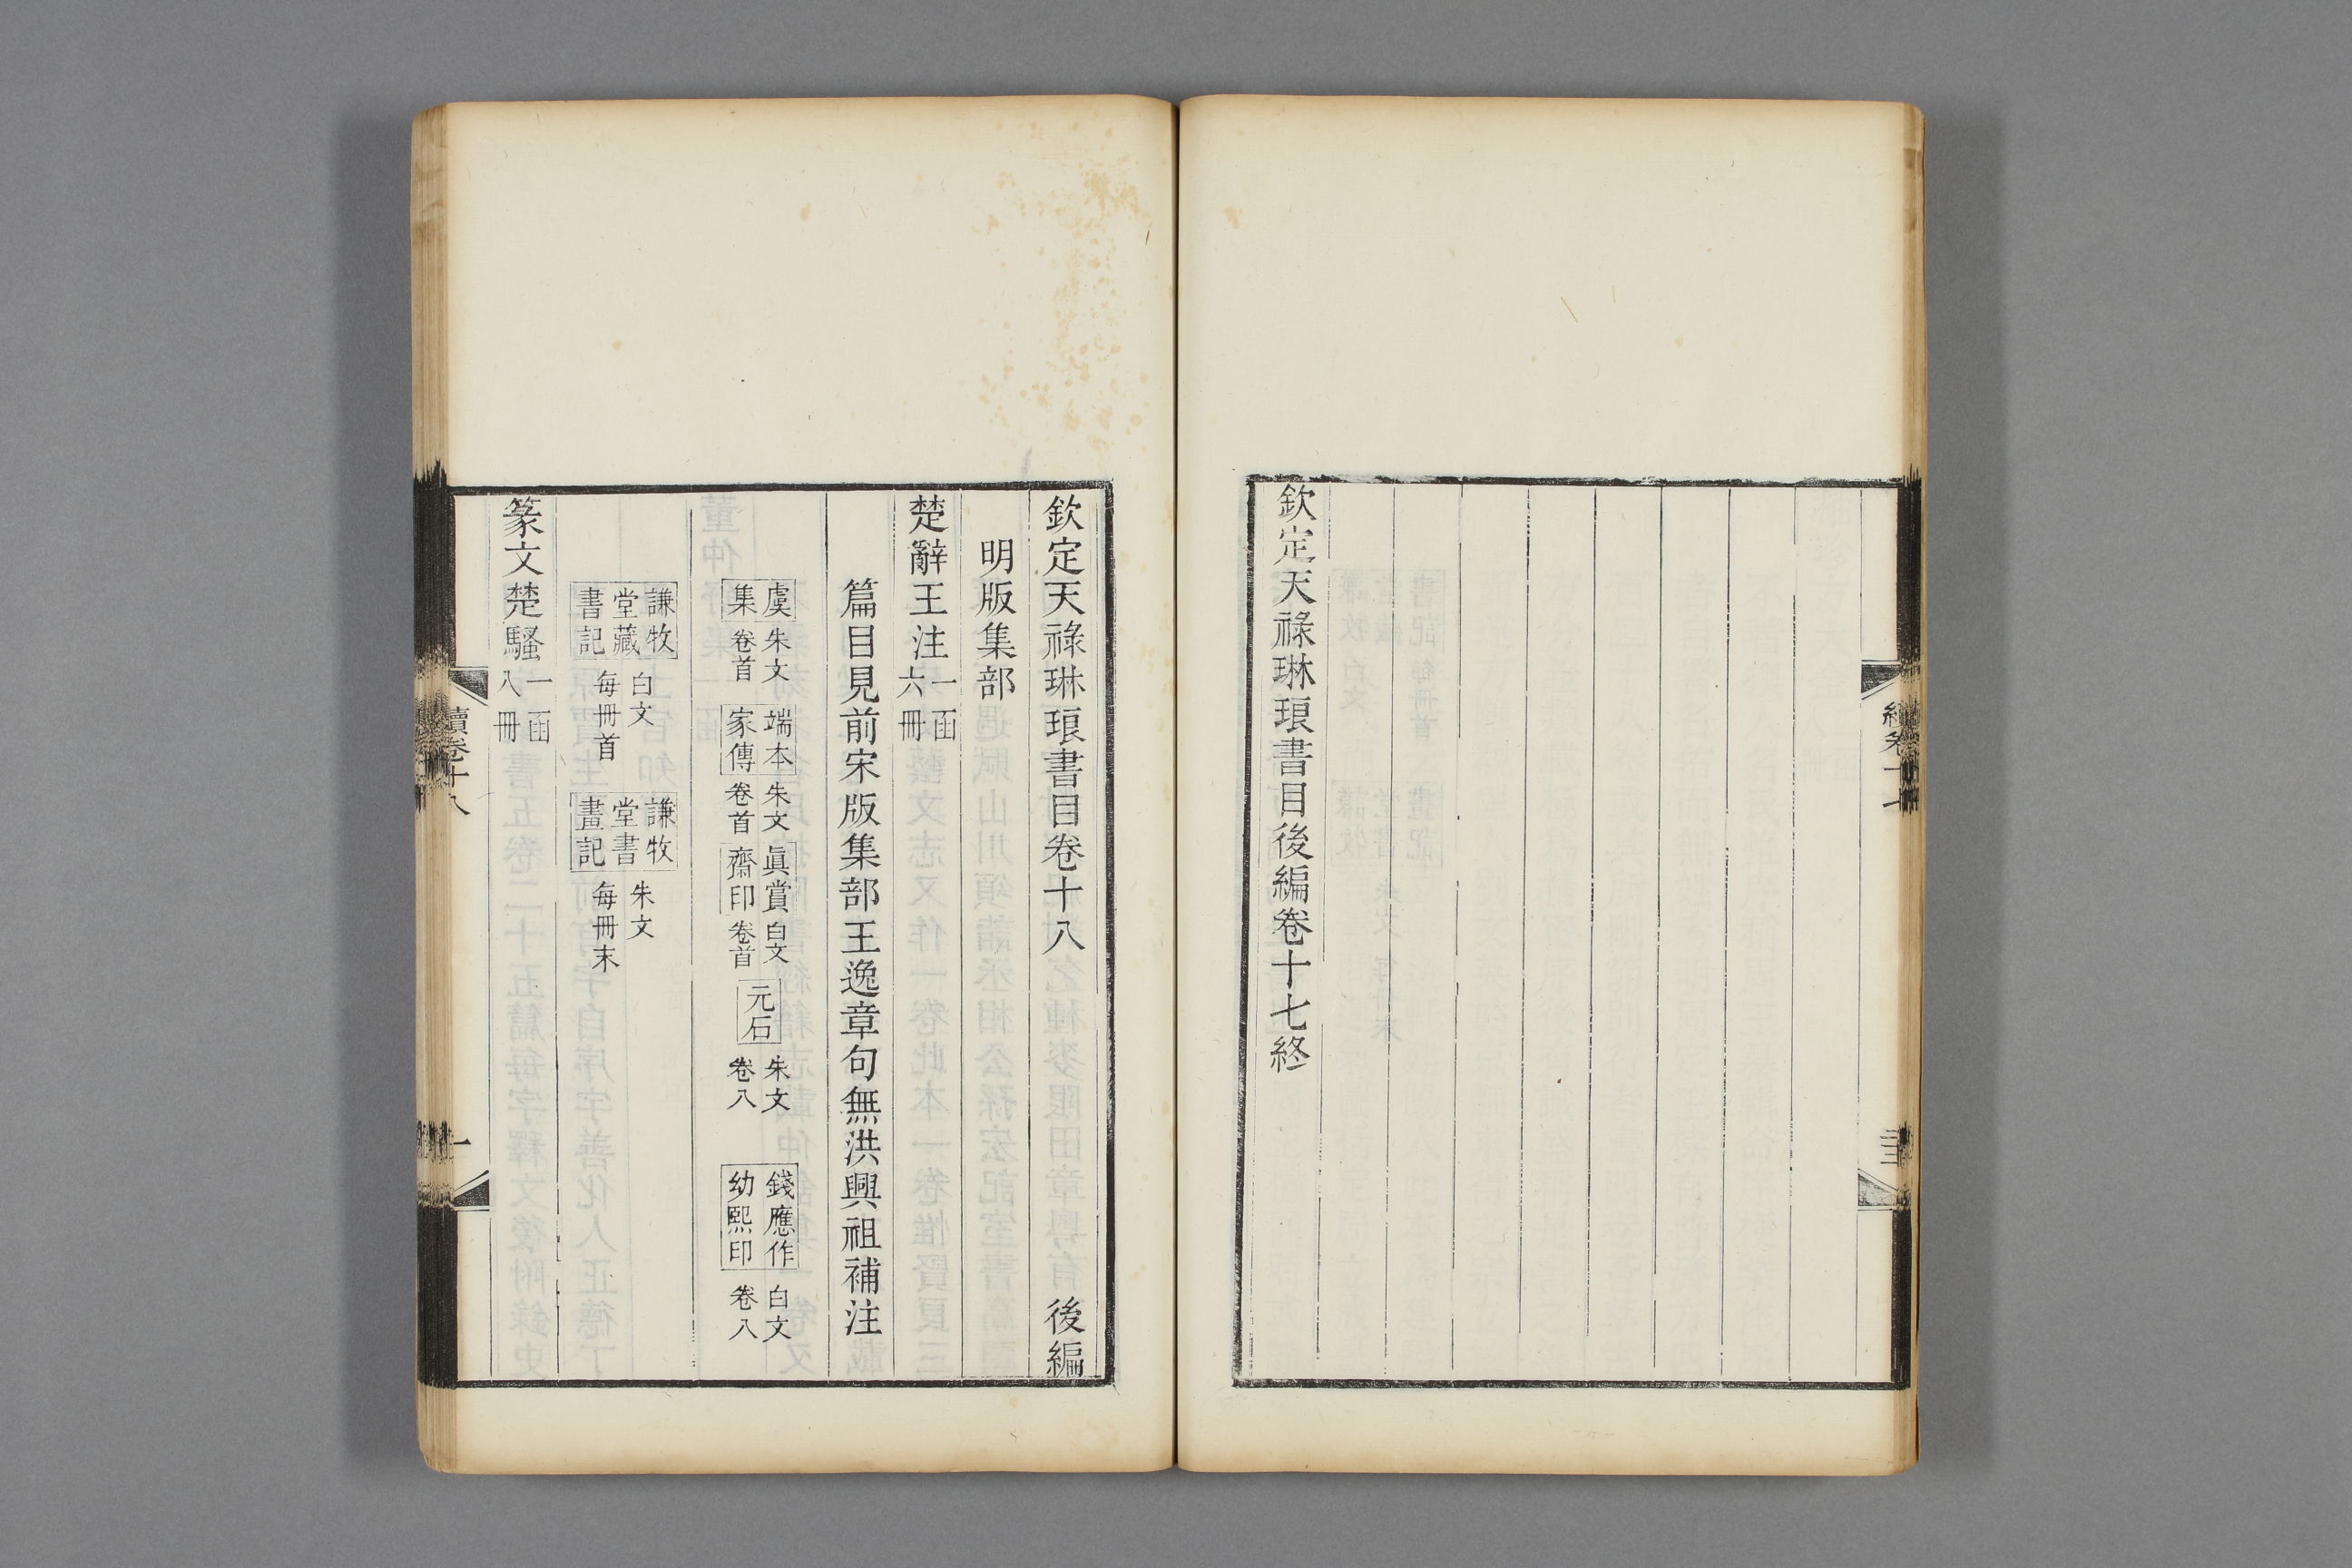 欽定天祿琳琅書目後編卷十七終
欽定天祿琳琅書目卷十八 後編
明版集部
楚辭王注 一函六冊
篇目見前宋版集部王逸章句無洪興祖補注
虞集 朱文卷首 端本家傳 朱文卷首 眞賞齋印 白文卷首 元石 朱文卷八 錢應作幼熙印 白文卷八
謙牧堂藏書記 白文每冊首 謙牧堂書畫記 朱文每冊末
篆文楚騷 一函八冊
續卷十八
一